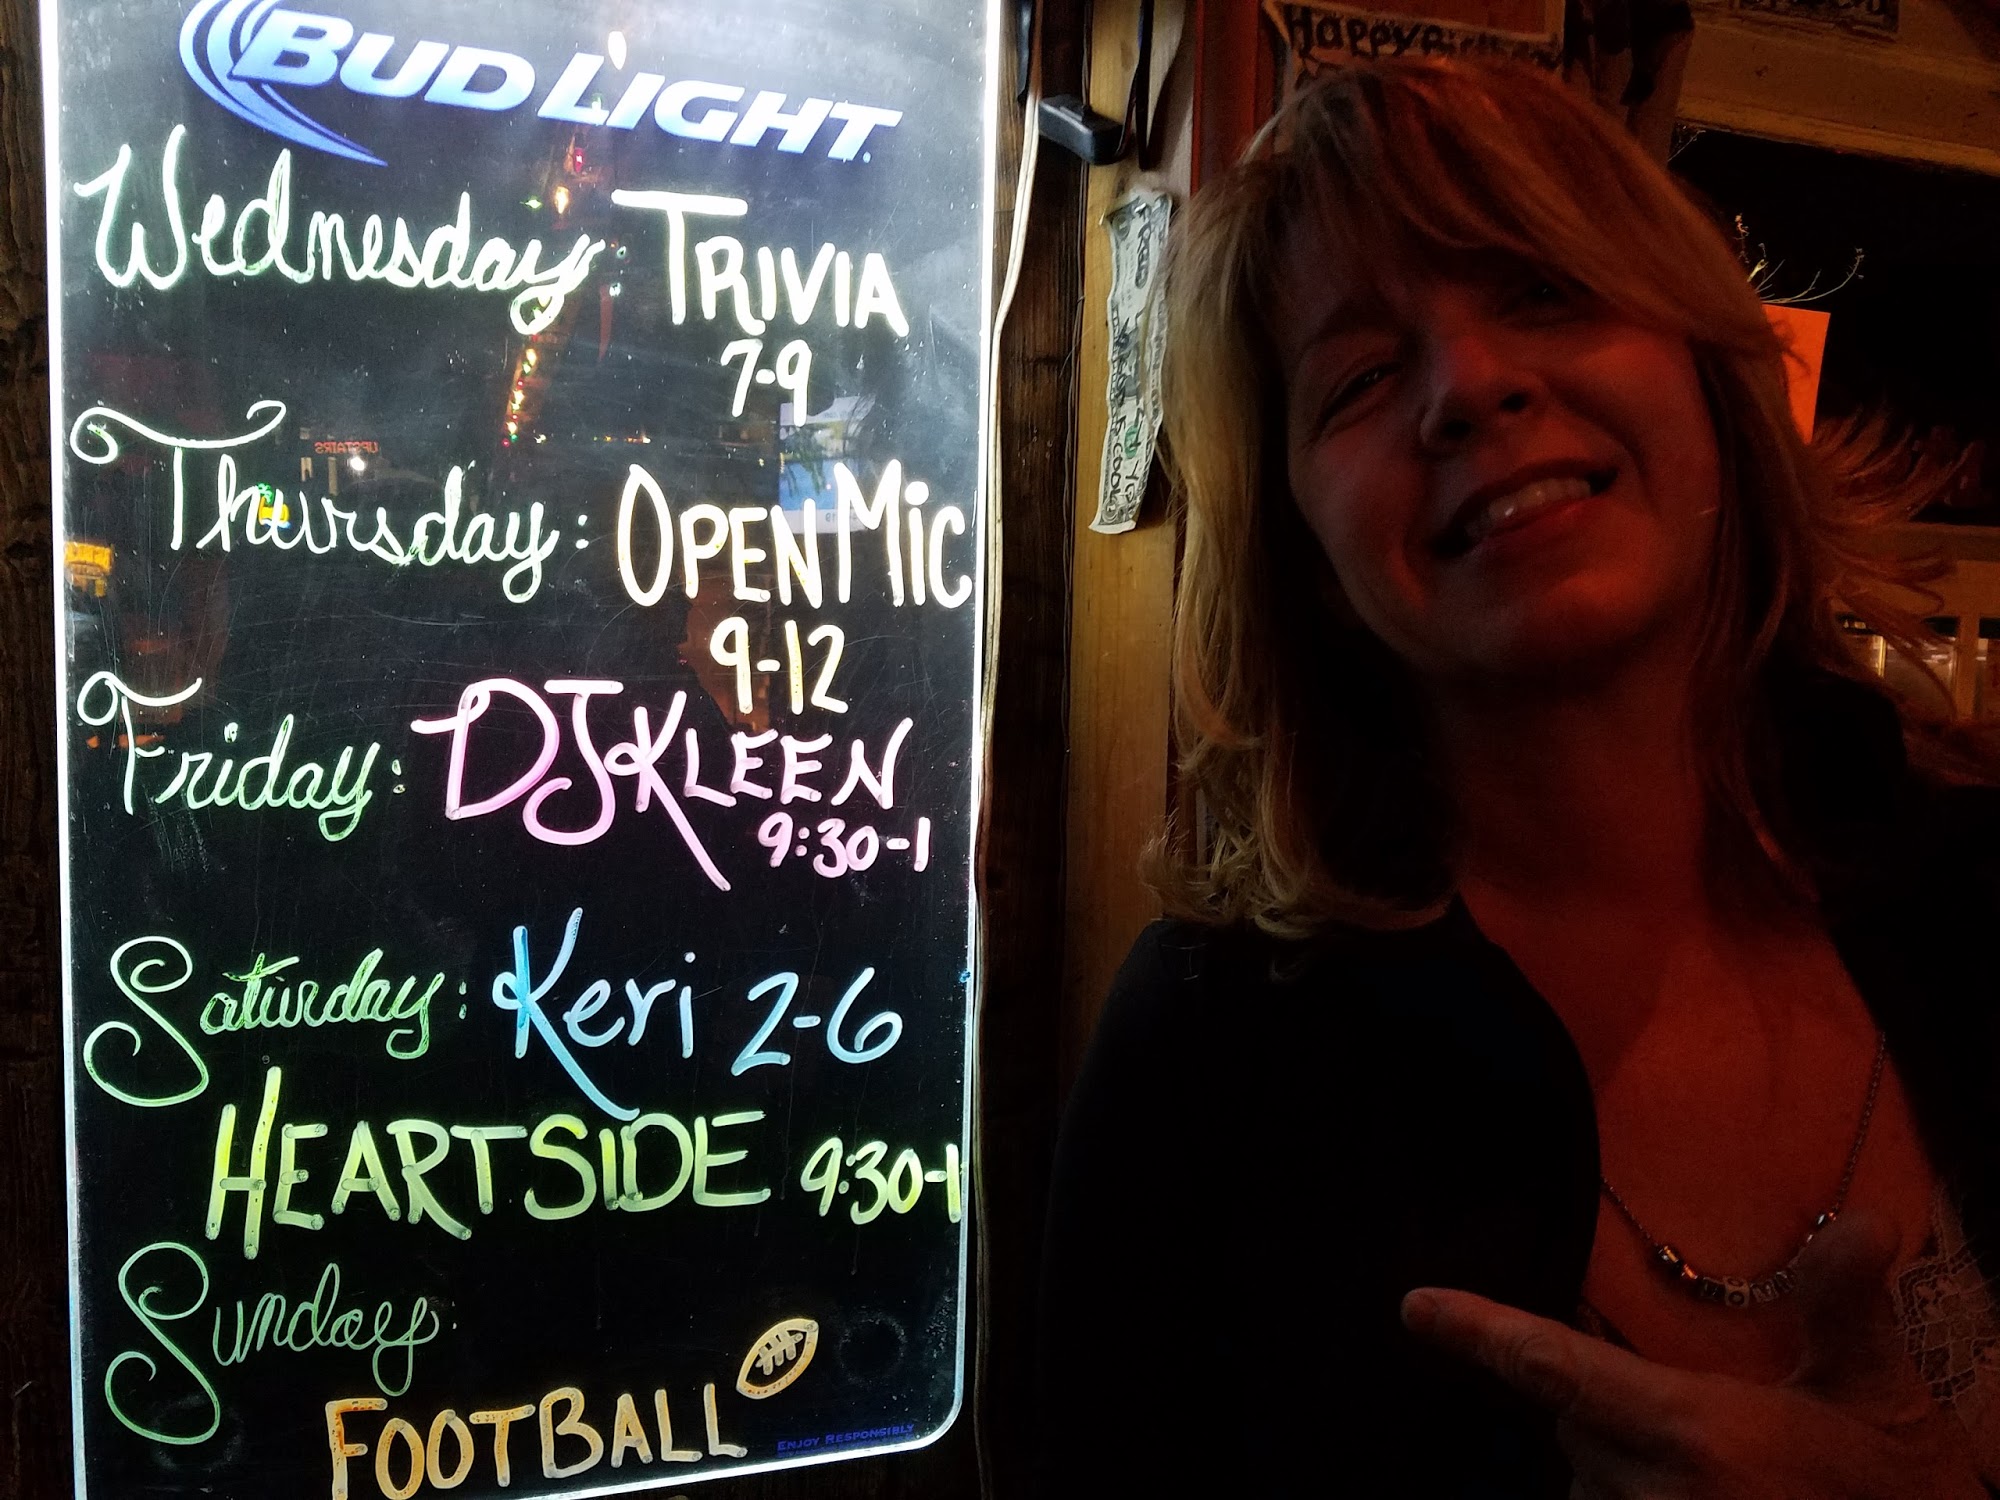 BUD LIGHT
Wednesday: TRIVIA
7-9
Thursday: OPEN MIC
9-12
Friday: DJ KLEEN
9:30-1
Saturday: Keri 2-6
HEARTSIDE 9:30-1
Sunday:
FOOTBALL
ENJOY RESPONSIBLY
Happy Birthday
UPSTAIRS